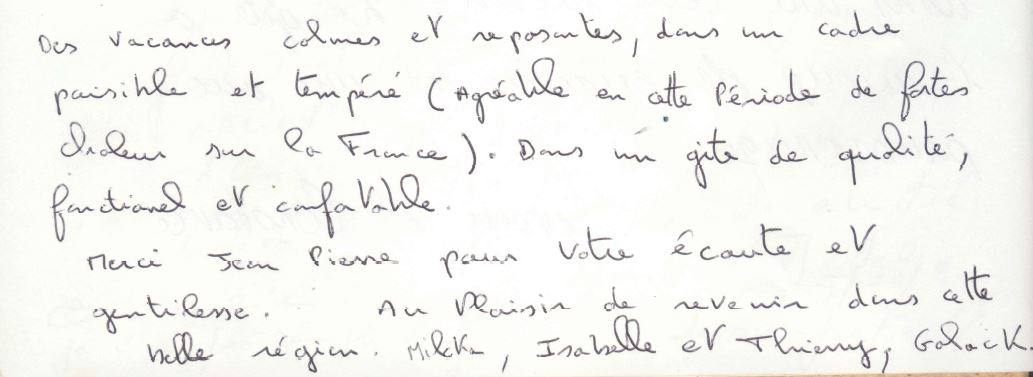 Des vacances calmes et reposantes, dans un cadre
paisible et tempéré (Agréable en cette Période de fortes
chaleur sur la France). Dans un gite de qualité,
fonctionel et confortable.
Merci Jean Pierre pour Votre écoute et
gentilesse. Au Plaisir de revenir dans cette
belle région. Milcka, Isabelle et Thierry, Galack.